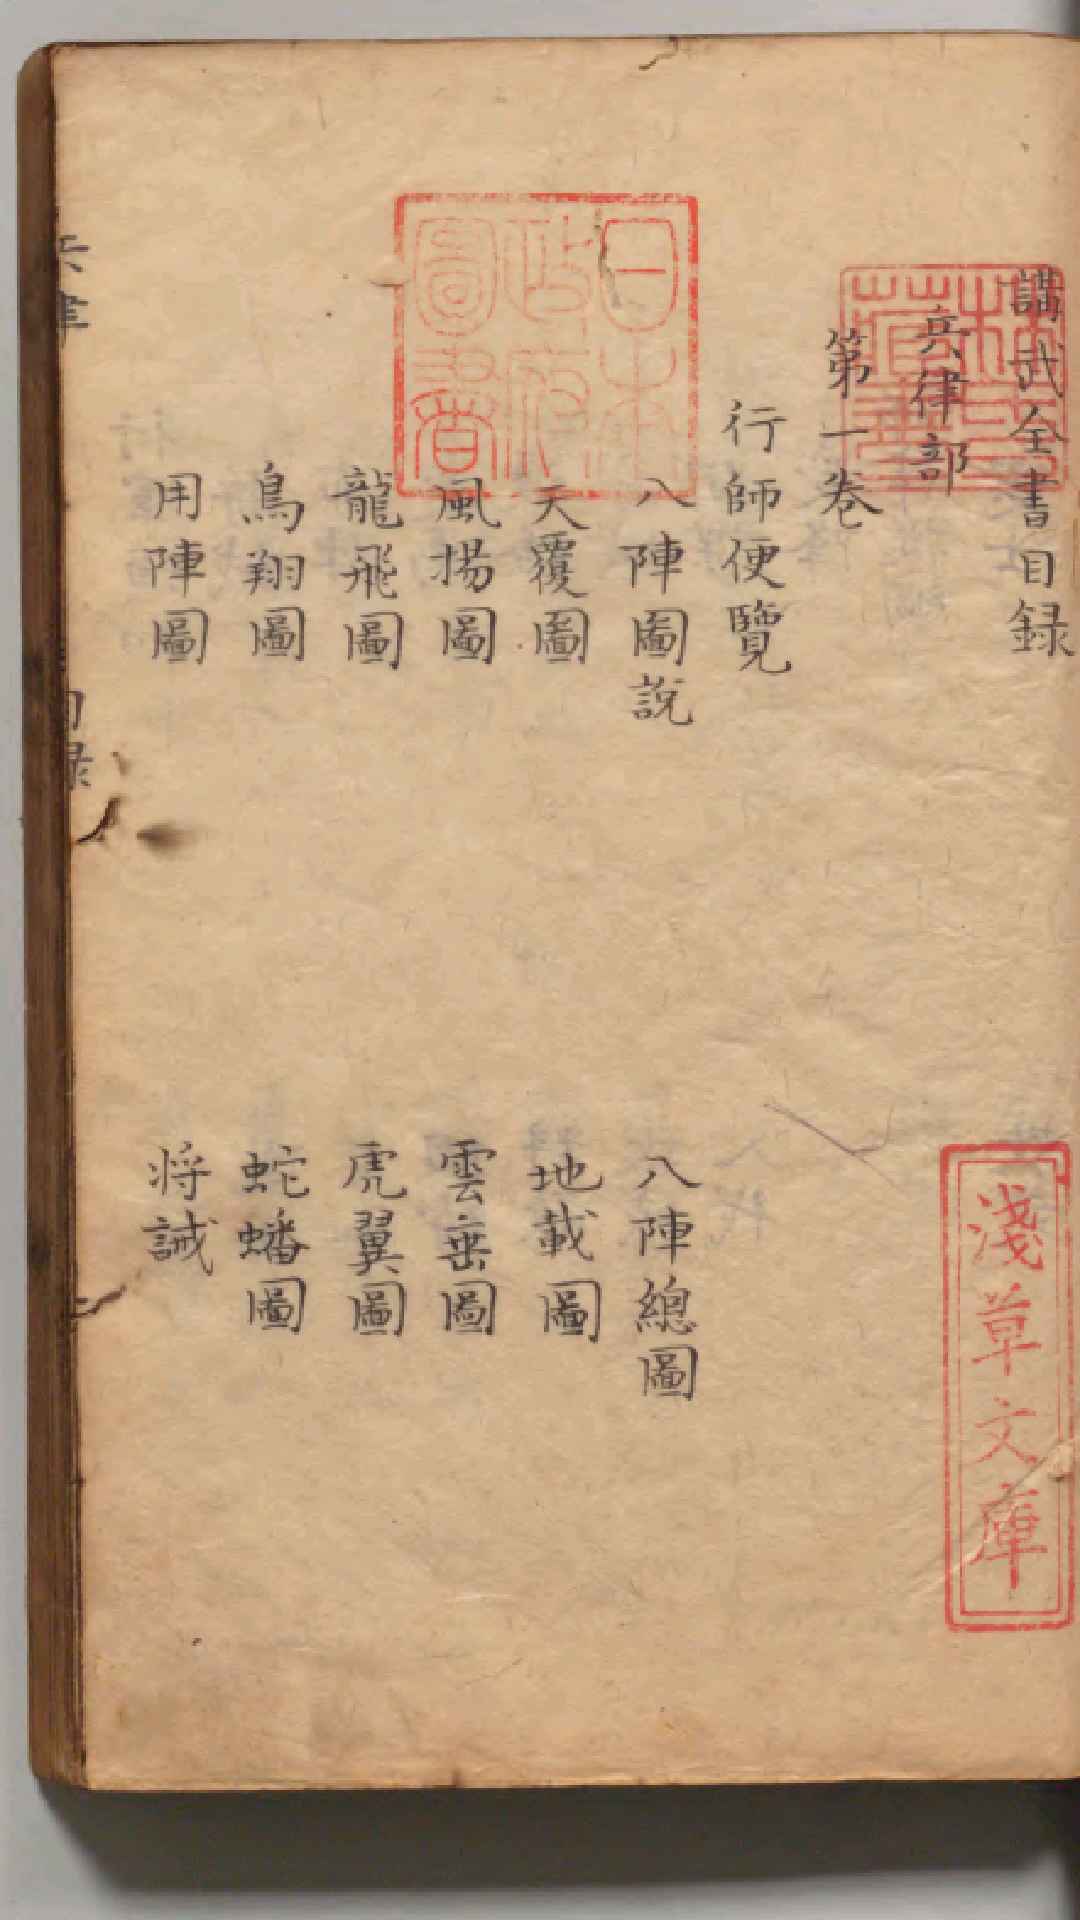 講武全書目録
兵律部
第一卷
行師便覽
八陣圖說
八陣總圖
天覆圖
地載圖
風揚圖
雲垂圖
龍飛圖
虎翼圖
鳥翔圖
蛇蟠圖
用陣圖
将誡
兵律
目録
日本政府圖書
林氏藏書
淺草文庫